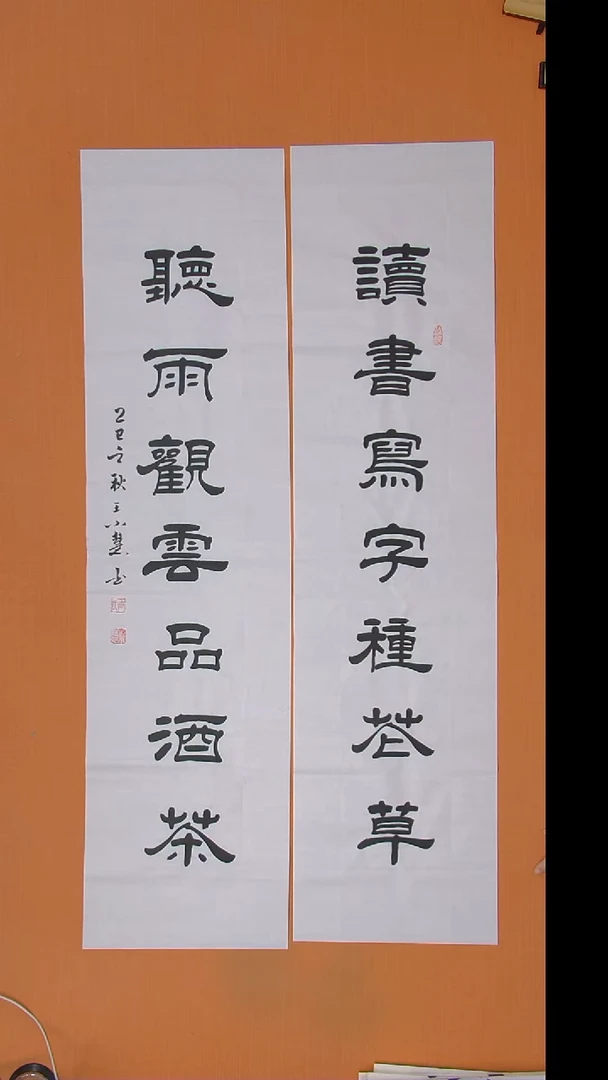 讀書寫字種花草
聽雨觀雲品酒茶
乙巳之秋王小慧書